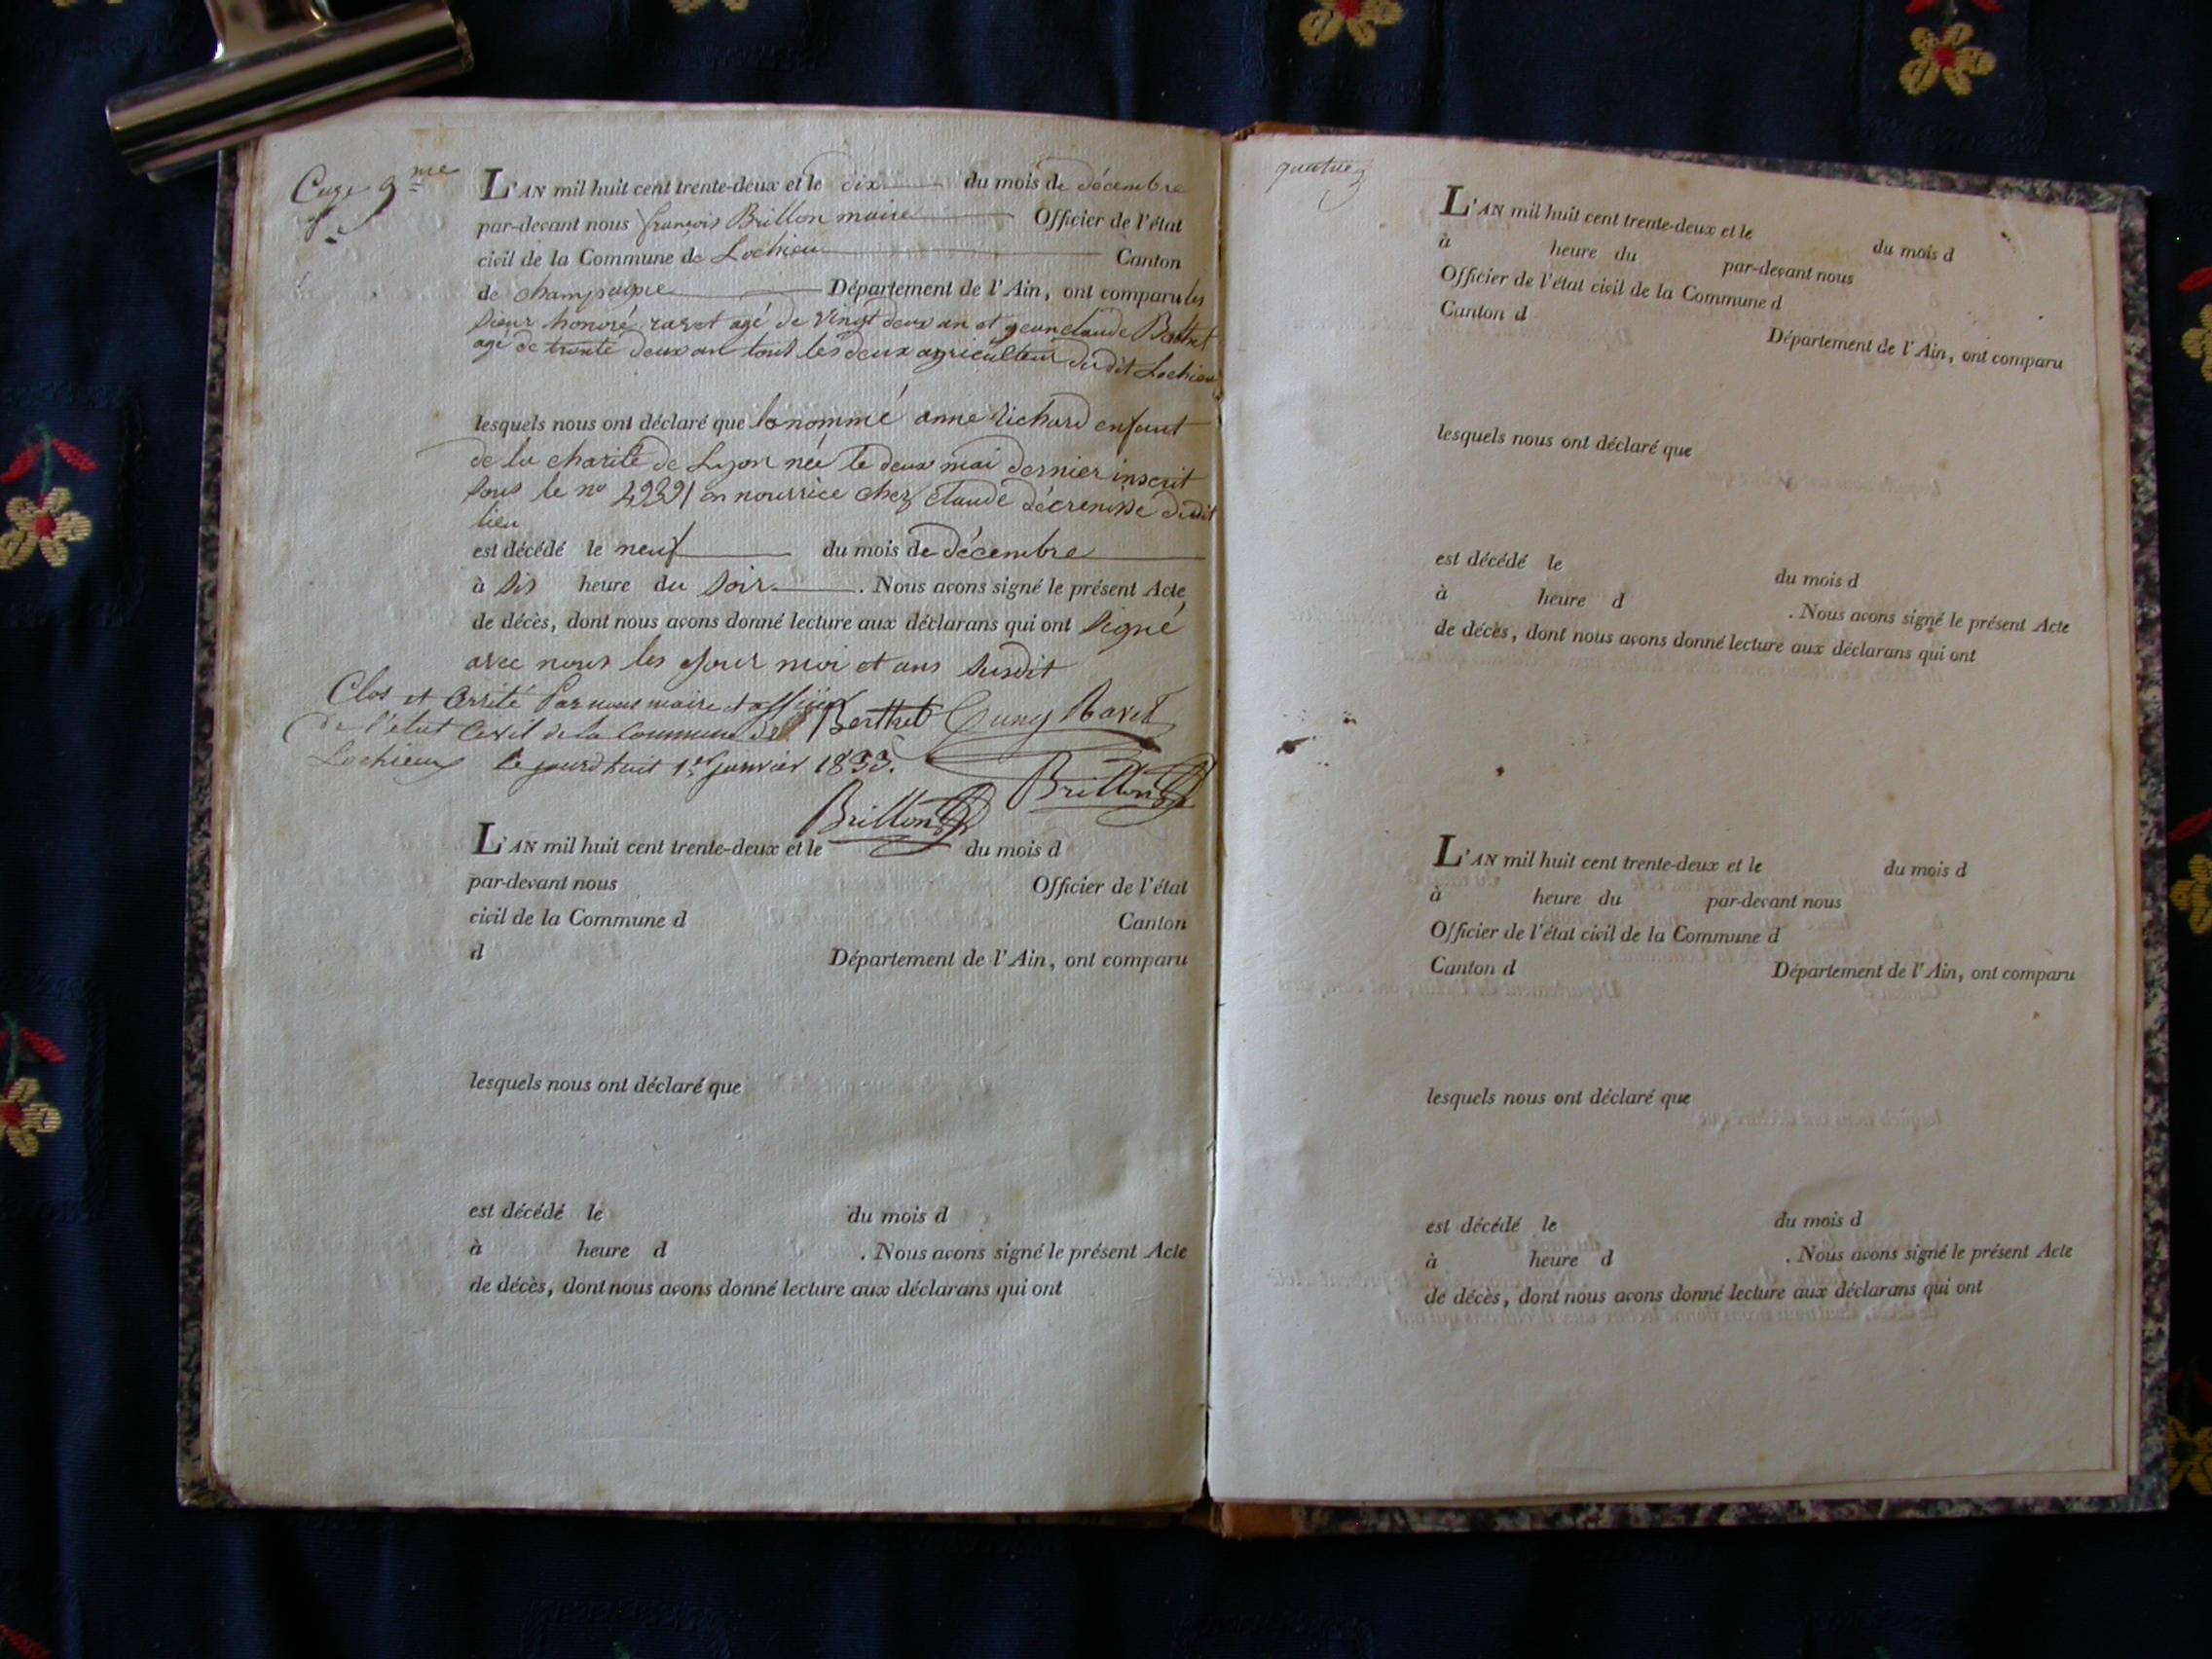 9me
L'AN mil huit cent trente-deux et le dix du mois de décembre
par-devant nous françois Brillon maire Officier de l'état
civil de la Commune de Lochieu Canton
de champagne Département de l'Ain, ont comparu les
sieur honoré ravet agé de vingt deux an et jean claude Berthet
agé de trente deux an tout les deux agriculteur dudit Lochieu
lesquels nous ont déclaré que la nommé anne Richard enfant
de la charité de Lyon née le deux mai dernier inscrit
sous le no en nourrice chez claude décrenisse dudit
lieu
est décédé le neuf du mois de décembre
à sis heure du soir . Nous avons signé le présent Acte
de décès, dont nous avons donné lecture aux déclarans qui ont signé
avec nous les jour moi et ans susdit
Clos et arrêté Par nous maire et officier Berthet Ravet
de l'état Civil de la Commune de
Lochieux le jourd'huit 1er janvier 1833.
Brillon
Brillon
L'AN mil huit cent trente-deux et le du mois d
par-devant nous Officier de l'état
civil de la Commune d Canton
d Département de l'Ain, ont comparu
lesquels nous ont déclaré que
est décédé le du mois d
à heure d . Nous avons signé le présent Acte
de décès, dont nous avons donné lecture aux déclarans qui ont
quatre
L'AN mil huit cent trente-deux et le du mois d
à heure du par-devant nous
Officier de l'état civil de la Commune d
Canton d Département de l'Ain, ont comparu
lesquels nous ont déclaré que
est décédé le du mois d
à heure d . Nous avons signé le présent Acte
de décès, dont nous avons donné lecture aux déclarans qui ont
L'AN mil huit cent trente-deux et le du mois d
à heure du par-devant nous
Officier de l'état civil de la Commune d
Canton d Département de l'Ain, ont comparu
lesquels nous ont déclaré que
est décédé le du mois d
à heure d . Nous avons signé le présent Acte
de décès, dont nous avons donné lecture aux déclarans qui ont